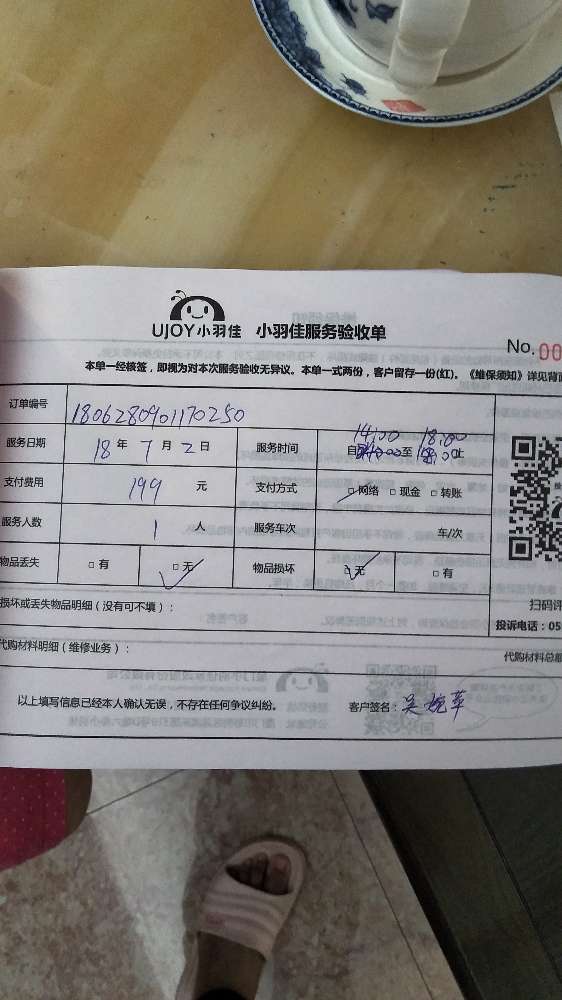 UJOY小羽佳 小羽佳服务验收单
No.00
本单一经核签，即视为对本次服务验收无异议。本单一式两份，客户留存一份(红)。《维保须知》详见背面
订单编号 1806280901170250
服务日期 18年7月2日 服务时间 自14:00至18:00止
支付费用 199元 支付方式 □网络 □现金 □转账
服务人数 1人 服务车次 车/次
物品丢失 □有 □无 物品损坏 □无 □有
扫码评
损坏或丢失物品明细（没有可不填）：
投诉电话：05
代购材料明细（维修业务）：
代购材料总额
以上填写信息已经本人确认无误，不存在任何争议纠纷。 客户签名：吴婉苹